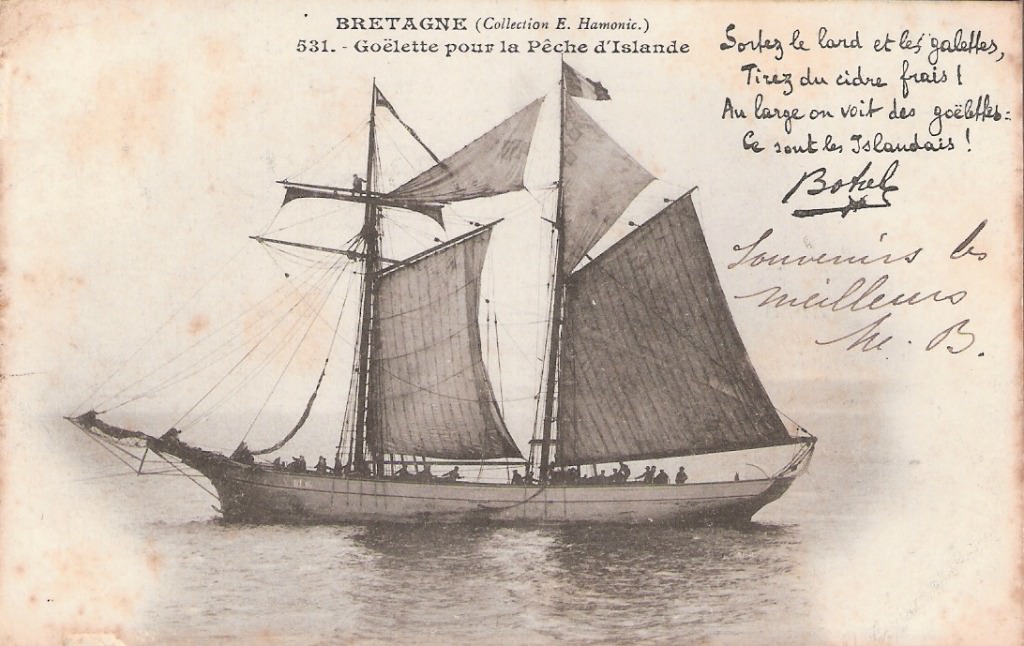 BRETAGNE (Collection E. Hamonic.)
531. - Goëlette pour la Pêche d'Islande
Sortez le lard et les galettes,
Tirez du cidre frais !
Au large on voit des goëlettes :
Ce sont les Islandais !
Botrel
Souvenirs les
meilleurs
M. B.